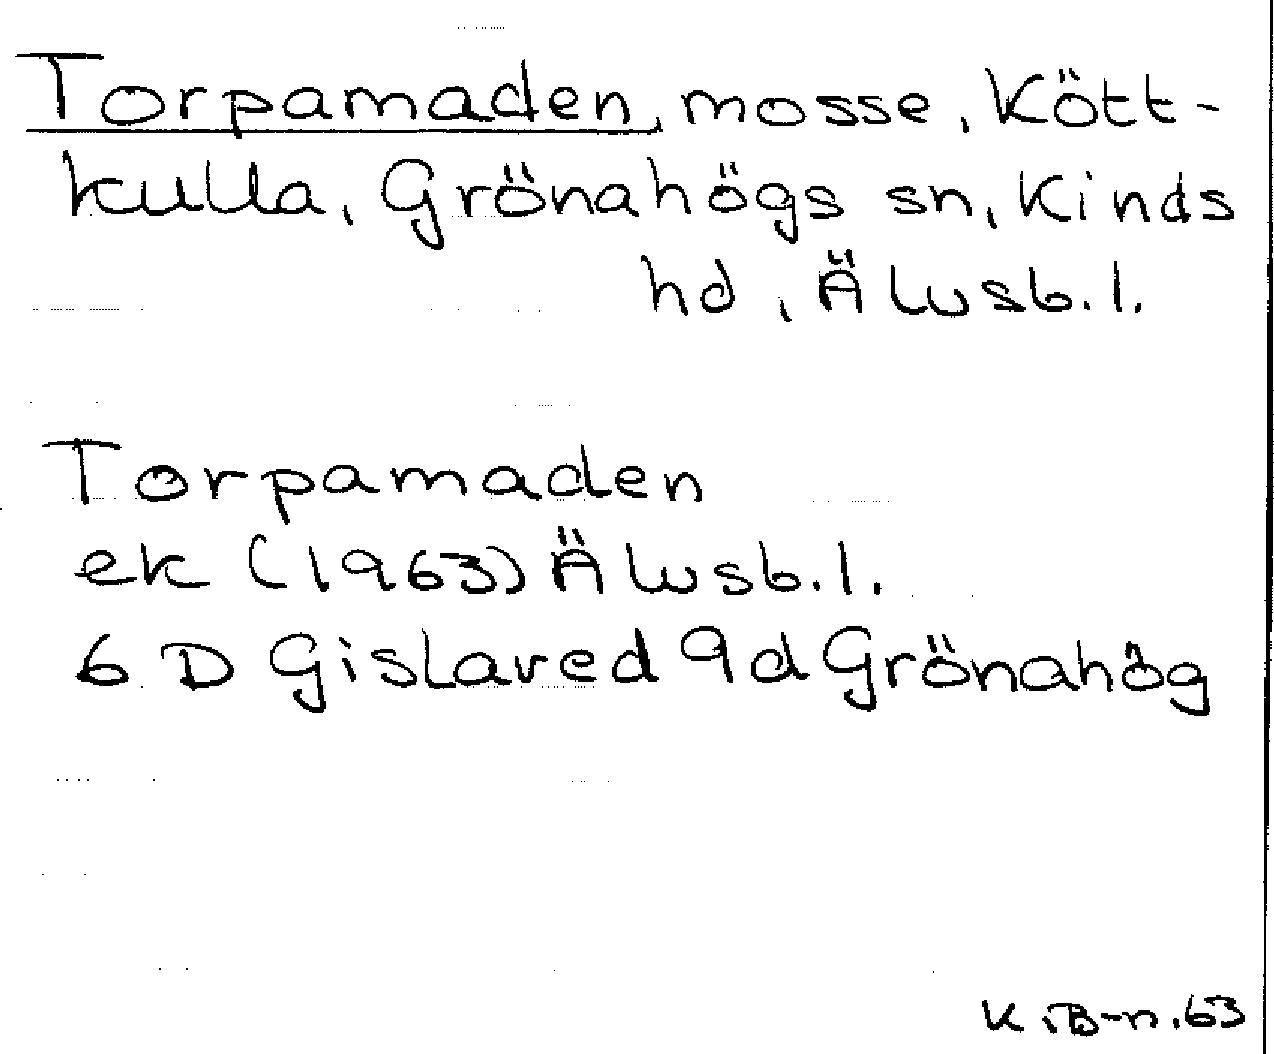 Torpamaden, mosse, Kött-
kulla, Grönahögs sn, Kinds
hd, Älvsb.l.
Torpamaden
ek (1963) Älvsb.l.
6 D Gislaved 9d Grönahög
K.B-n.63